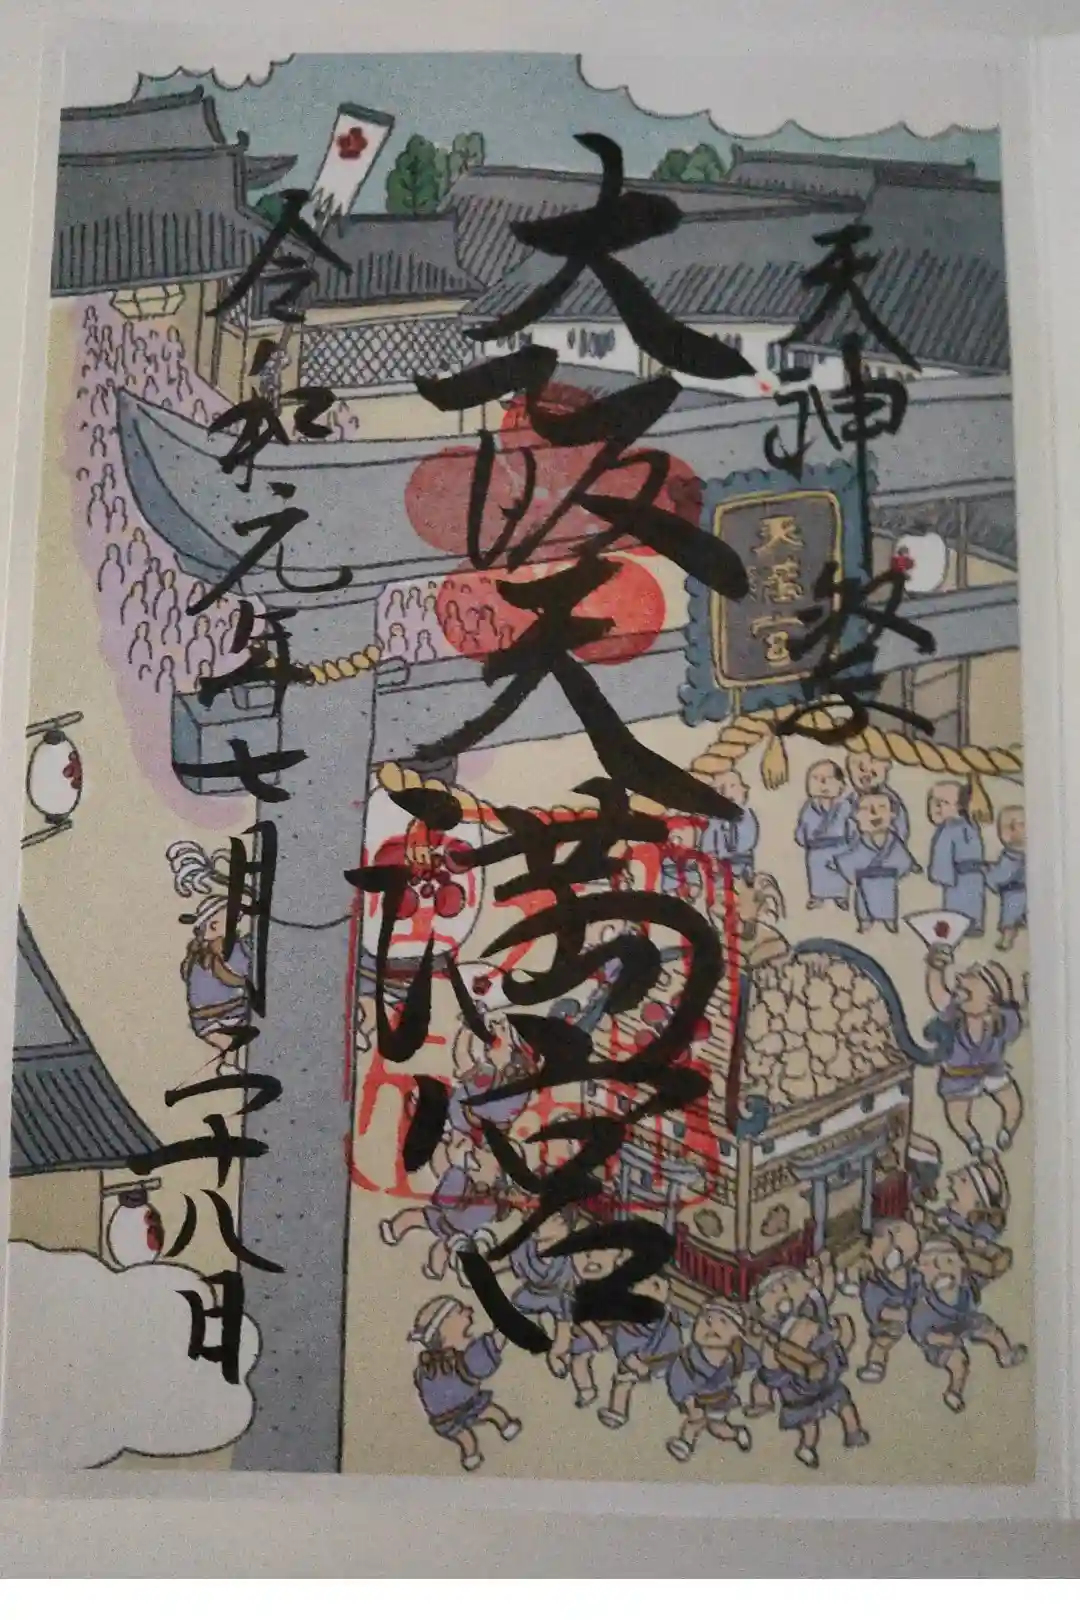 天神祭
大阪天満宮
令和元年七月二十八日
天満宮